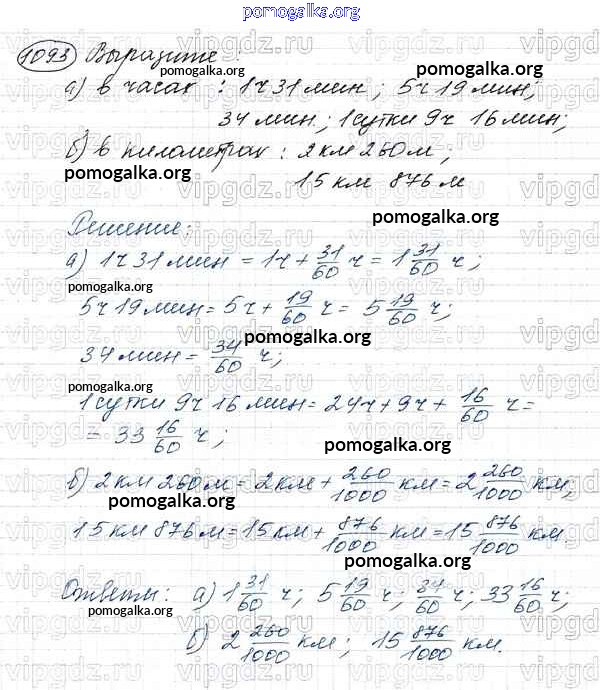 pomogalka.org
1093 Выразите:
pomogalka.org
а) в часах: 1ч 31 мин; 5ч 19 мин;
34 мин; 1 сутки 9ч 16 мин;
pomogalka.org
б) в километрах: 2 км 260 м;
pomogalka.org
15 км 876 м
pomogalka.org
Решение:
а) 1ч 31 мин = 1ч + 31/60 ч = 1 31/60 ч;
pomogalka.org
5ч 19 мин = 5ч + 19/60 ч = 5 19/60 ч;
pomogalka.org
34 мин = 34/60 ч;
pomogalka.org
1 сутки 9ч 16 мин = 24ч + 9ч + 16/60 ч =
= 33 16/60 ч;
pomogalka.org
б) 2 км 260 м = 2 км + 260/1000 км = 2 260/1000 км,
pomogalka.org
15 км 876 м = 15 км + 876/1000 км = 15 876/1000 км.
pomogalka.org
Ответы: а) 1 31/60 ч; 5 19/60 ч; 34/60 ч; 33 16/60 ч;
pomogalka.org
б) 2 260/1000 км; 15 876/1000 км.
pomogalka.org
vipgdz.ru